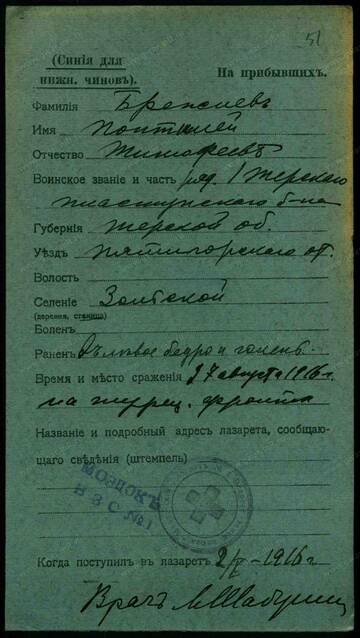 51
(Синія для
нижн. чиновъ).
На прибывшихъ.
Фамилія
Имя Понтилей
Отчество Тимофеевъ
Воинское званіе и часть ряд. 1 Терскаго
пластунскаго б-на
Губернія Терской об.
Уѣздъ Пятигорскаго от.
Волость
Селеніе Зольской
(деревня, станица)
Боленъ
Раненъ въ лѣвое бедро и голень.
Время и мѣсто сраженія 27 августа 1916 г.
на турец. фронтѣ
Названіе и подробный адресъ лазарета, сообщаю-
щаго свѣдѣнія (штемпель)
МОЗДОКЪ
Когда поступилъ въ лазаретъ 2/X – 1916 г
Врачъ